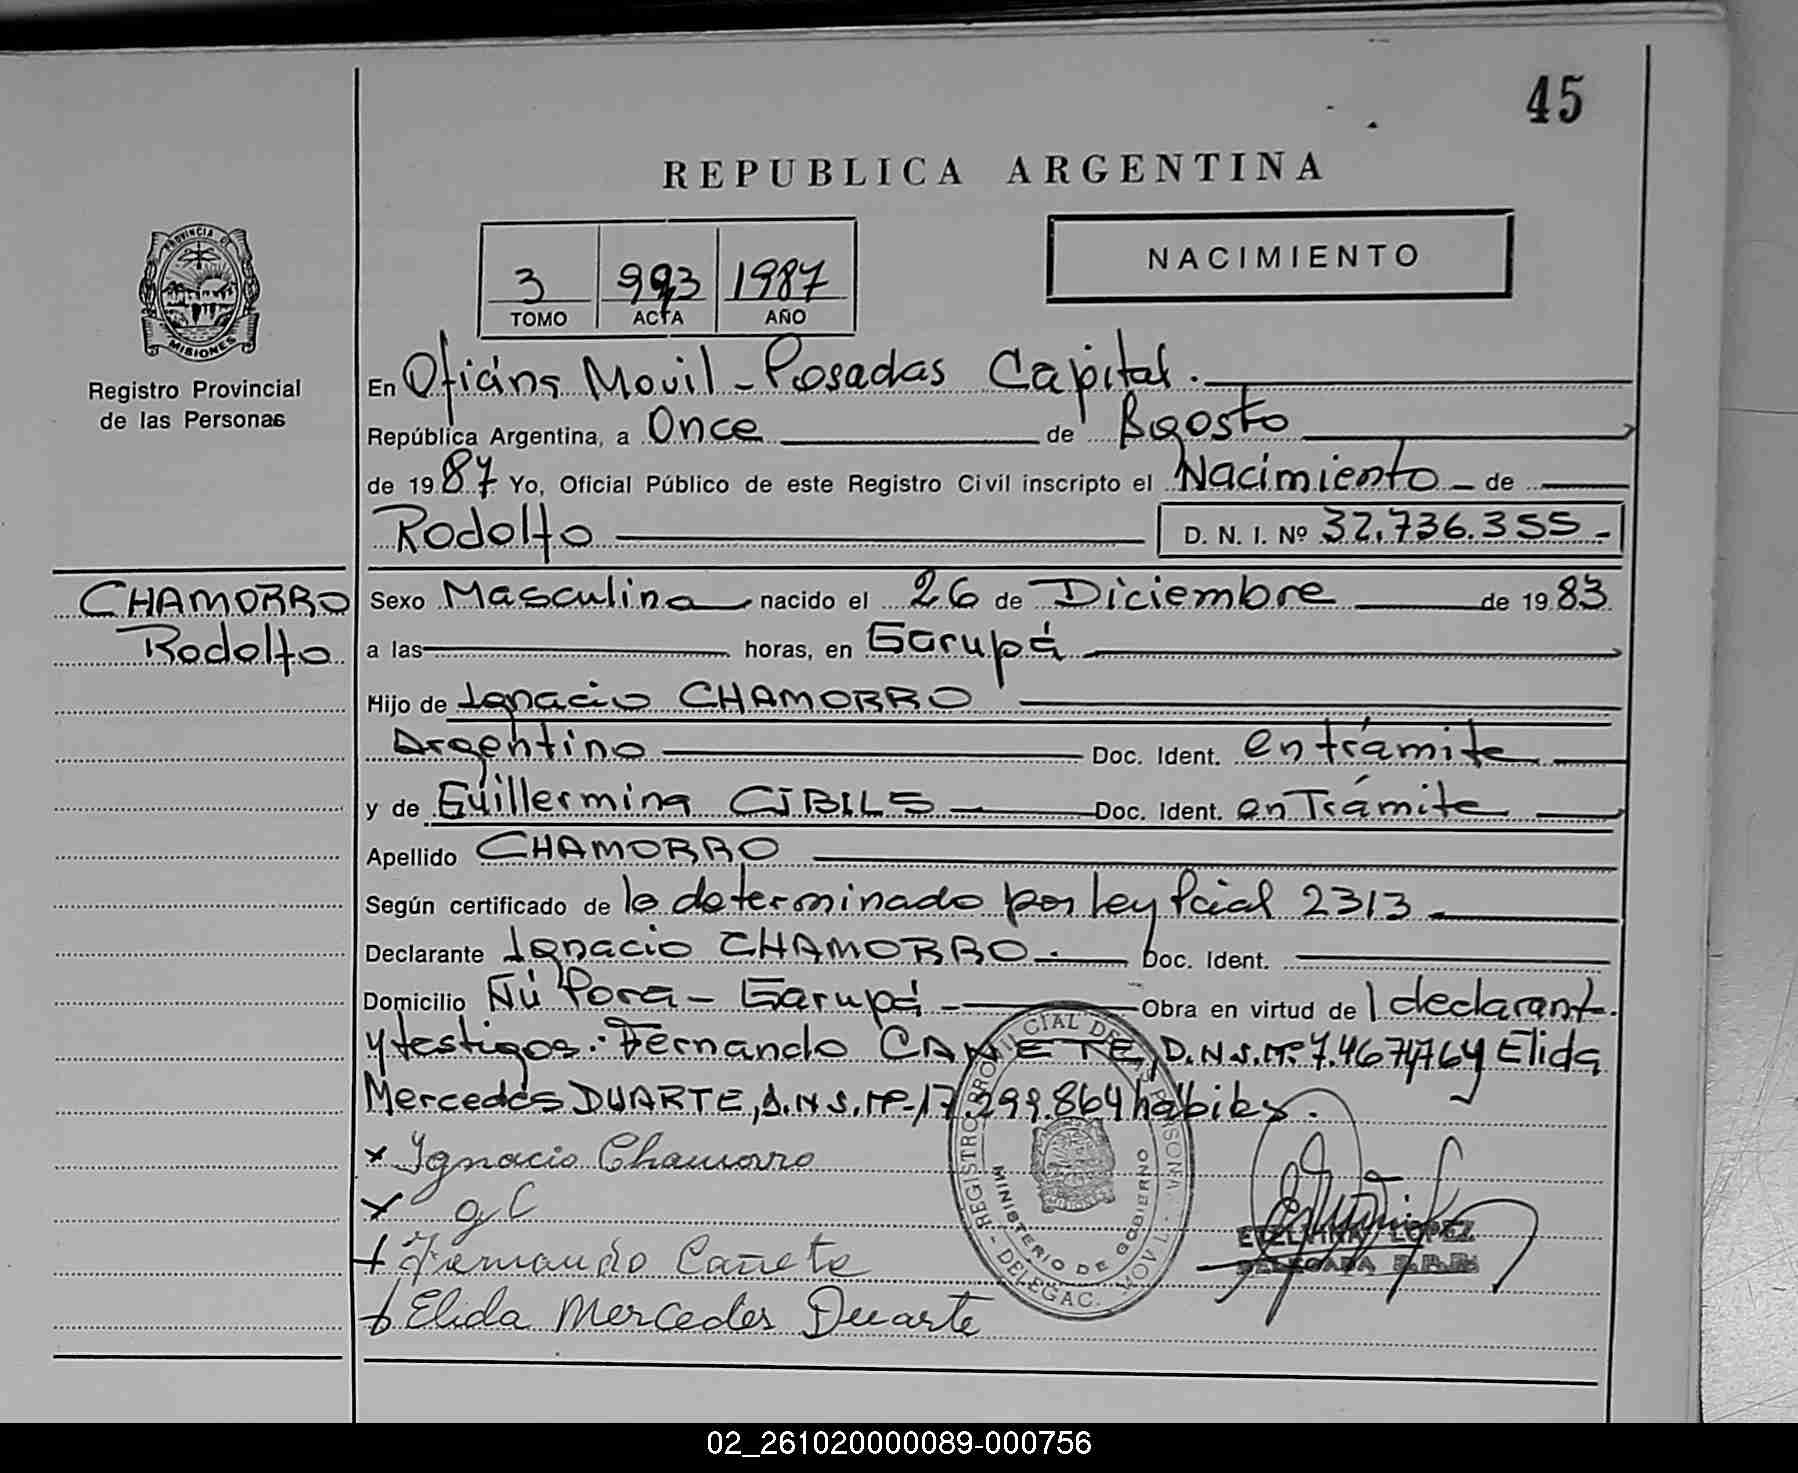 45
REPUBLICA ARGENTINA
3 993 1987
TOMO ACTA AÑO
NACIMIENTO
PROVINCIA DE
MISIONES
Registro Provincial
de las Personas
En Oficina Movil - Posadas Capital.
República Argentina, a Once de Agosto
de 1987 Yo, Oficial Público de este Registro Civil inscripto el Nacimiento de
Rodolfo D. N. I. Nº 32.736.355-
CHAMORRO
Rodolfo
Sexo Masculino nacido el 26 de Diciembre de 1983
a las horas, en Garupá
Hijo de Ignacio CHAMORRO
Argentino Doc. Ident. en trámite
y de Guillermina CIBILS Doc. Ident. en Trámite
Apellido CHAMORRO
Según certificado de lo determinado por ley Pcial 2313
Declarante Ignacio CHAMORRO. Doc. Ident.
Domicilio Ñú Pora - Garupá - Obra en virtud de l declarant.
y testigos: Fernando CAÑETE, D.N.I. Nº 7.467.476 y Elida
Mercedes DUARTE, D.N.I. Nº 17.299.864 hábiles.
x Ignacio Chamorro
x g C
x Fernando Cañete
x Elida Mercedes Duarte
REGISTRO PROVINCIAL DE LAS PERSONAS
MINISTERIO DE GOBIERNO
DELEGAC. MOVIL
ETELVINA LOPEZ
DELEGADA R.P.P.
02_261020000089-000756